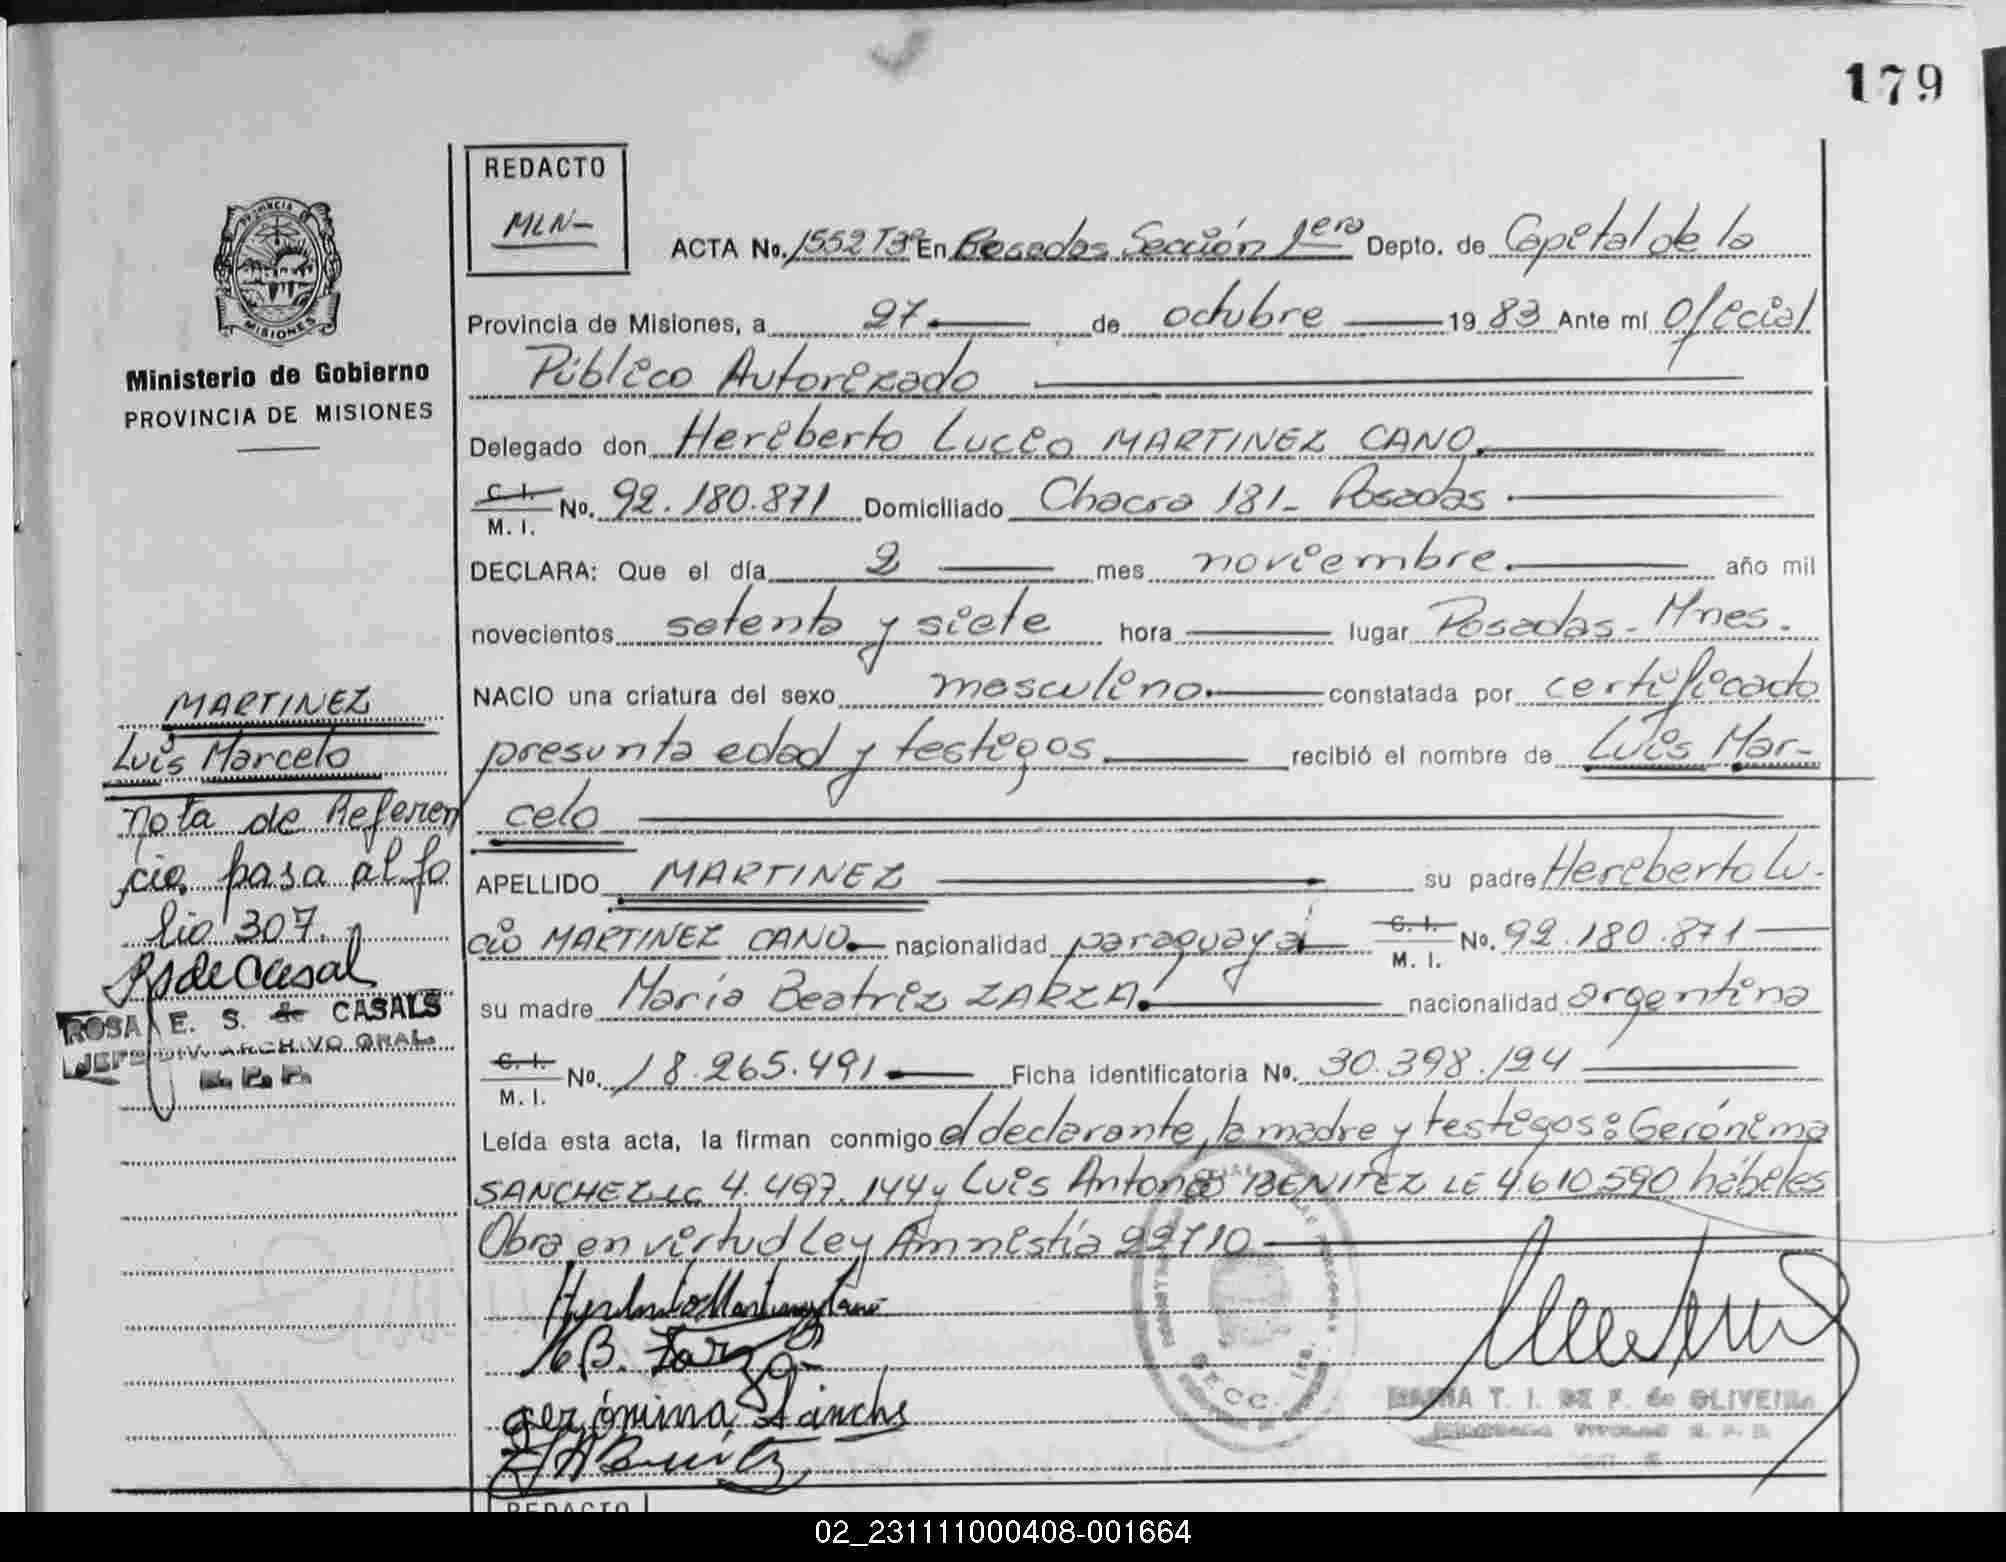 179
REDACTO
MLN-
ACTA No. 1552 Tº3º En Posadas Sección 1era Depto. de Capital de la
Provincia de Misiones, a 27 de octubre 1983 Ante mí Oficial
Público Autorizado
Ministerio de Gobierno
PROVINCIA DE MISIONES
Delegado don Heriberto Lucio MARTINEZ CANO.
C. I.
M. I. No. 92.180.871 Domiciliado Chacra 181- Posadas
DECLARA: Que el día 2 mes noviembre. año mil
novecientos setenta y siete hora lugar Posadas-Mnes.
NACIO una criatura del sexo masculino. constatada por certificado
presunta edad y testigos. recibió el nombre de Luis Mar-
celo
APELLIDO MARTINEZ su padre Heriberto Lu-
cio MARTINEZ CANO. nacionalidad paraguaya C. I.
M. I. No. 92.180.871
su madre María Beatriz ZARZA. nacionalidad argentina
C. I.
M. I. No. 18.265.491 Ficha identificatoria No. 30.398.124
Leída esta acta, la firman conmigo el declarante, la madre y testigos: Gerónima
SANCHEZ LC 4.497.144 y Luis Antonio BENITEZ LE 4.610.590 hábiles
Obra en virtud Ley Amnistía 22710
MARTINEZ
Luis Marcelo
nota de Referen
cia, pasa al fo
lio 307.
RSdeCasal
ROSA E. S. de CASALS
JEFE DIV. ARCHIVO GRAL.
R. P. P.
M B. Zarza
gerónima Sanche
MARIA T. I. DE F. de OLIVEIRA
REDACTO
02_231111000408-001664